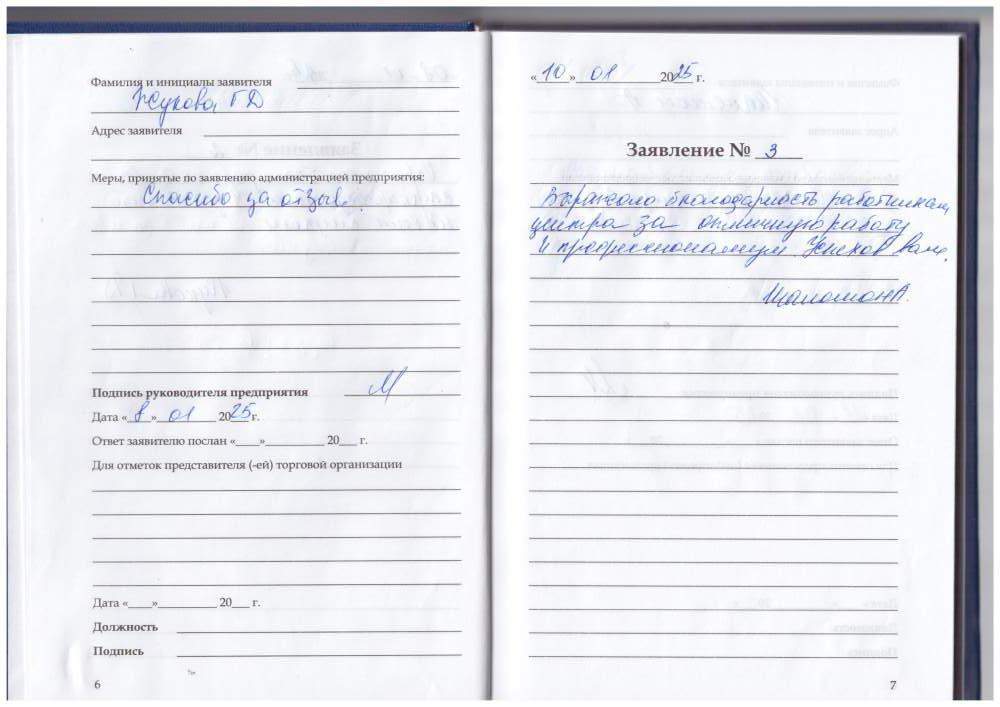 Фамилия и инициалы заявителя
Жукова Г Д
Адрес заявителя
Меры, принятые по заявлению администрацией предприятия:
Спасибо за отзыв.
Подпись руководителя предприятия
Дата «8» 01 2025 г.
Ответ заявителю послан «____»__________ 20___ г.
Для отметок представителя (-ей) торговой организации
Дата «____»__________ 20___ г.
Должность
Подпись
6
«10» 01 2025 г.
Заявление № 3
Выражаю благодарность работникам
центра за отличную работу
и профессионализм. Успехов вам.
А.
7